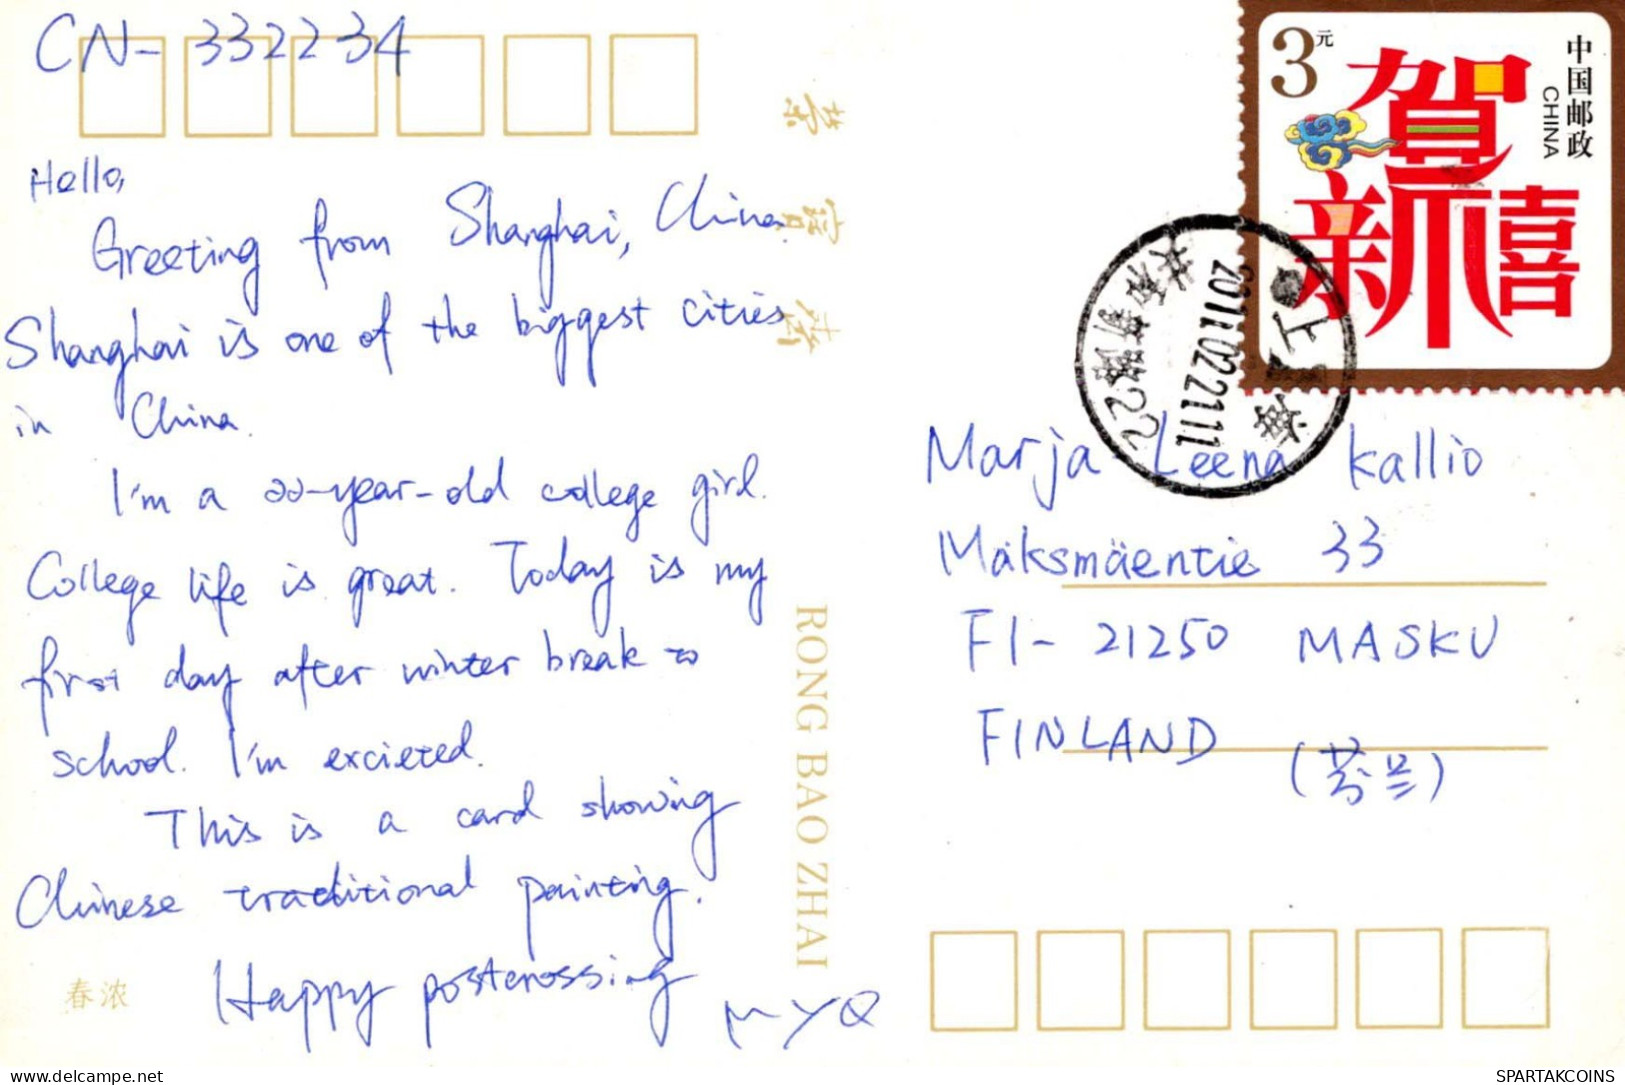 CN-332234
Hello,
Greeting from Shanghai, China.
Shanghai is one of the biggest cities
in China.
I'm a 22-year-old college girl.
College life is great. Today is my
first day after winter break to
school. I'm excieted.
This is a card showing
Chinese traditional painting.
Happy postcrossing
MYQ
春浓
荣宝斋
RONG BAO ZHAI
3元
中国邮政
CHINA
贺
新禧
上海
2011.02.22.11
Marja Leena Kallio
Maksmäentie 33
FI-21250 MASKU
FINLAND (芬兰)
delcampe.net
SPARTAKCOINS